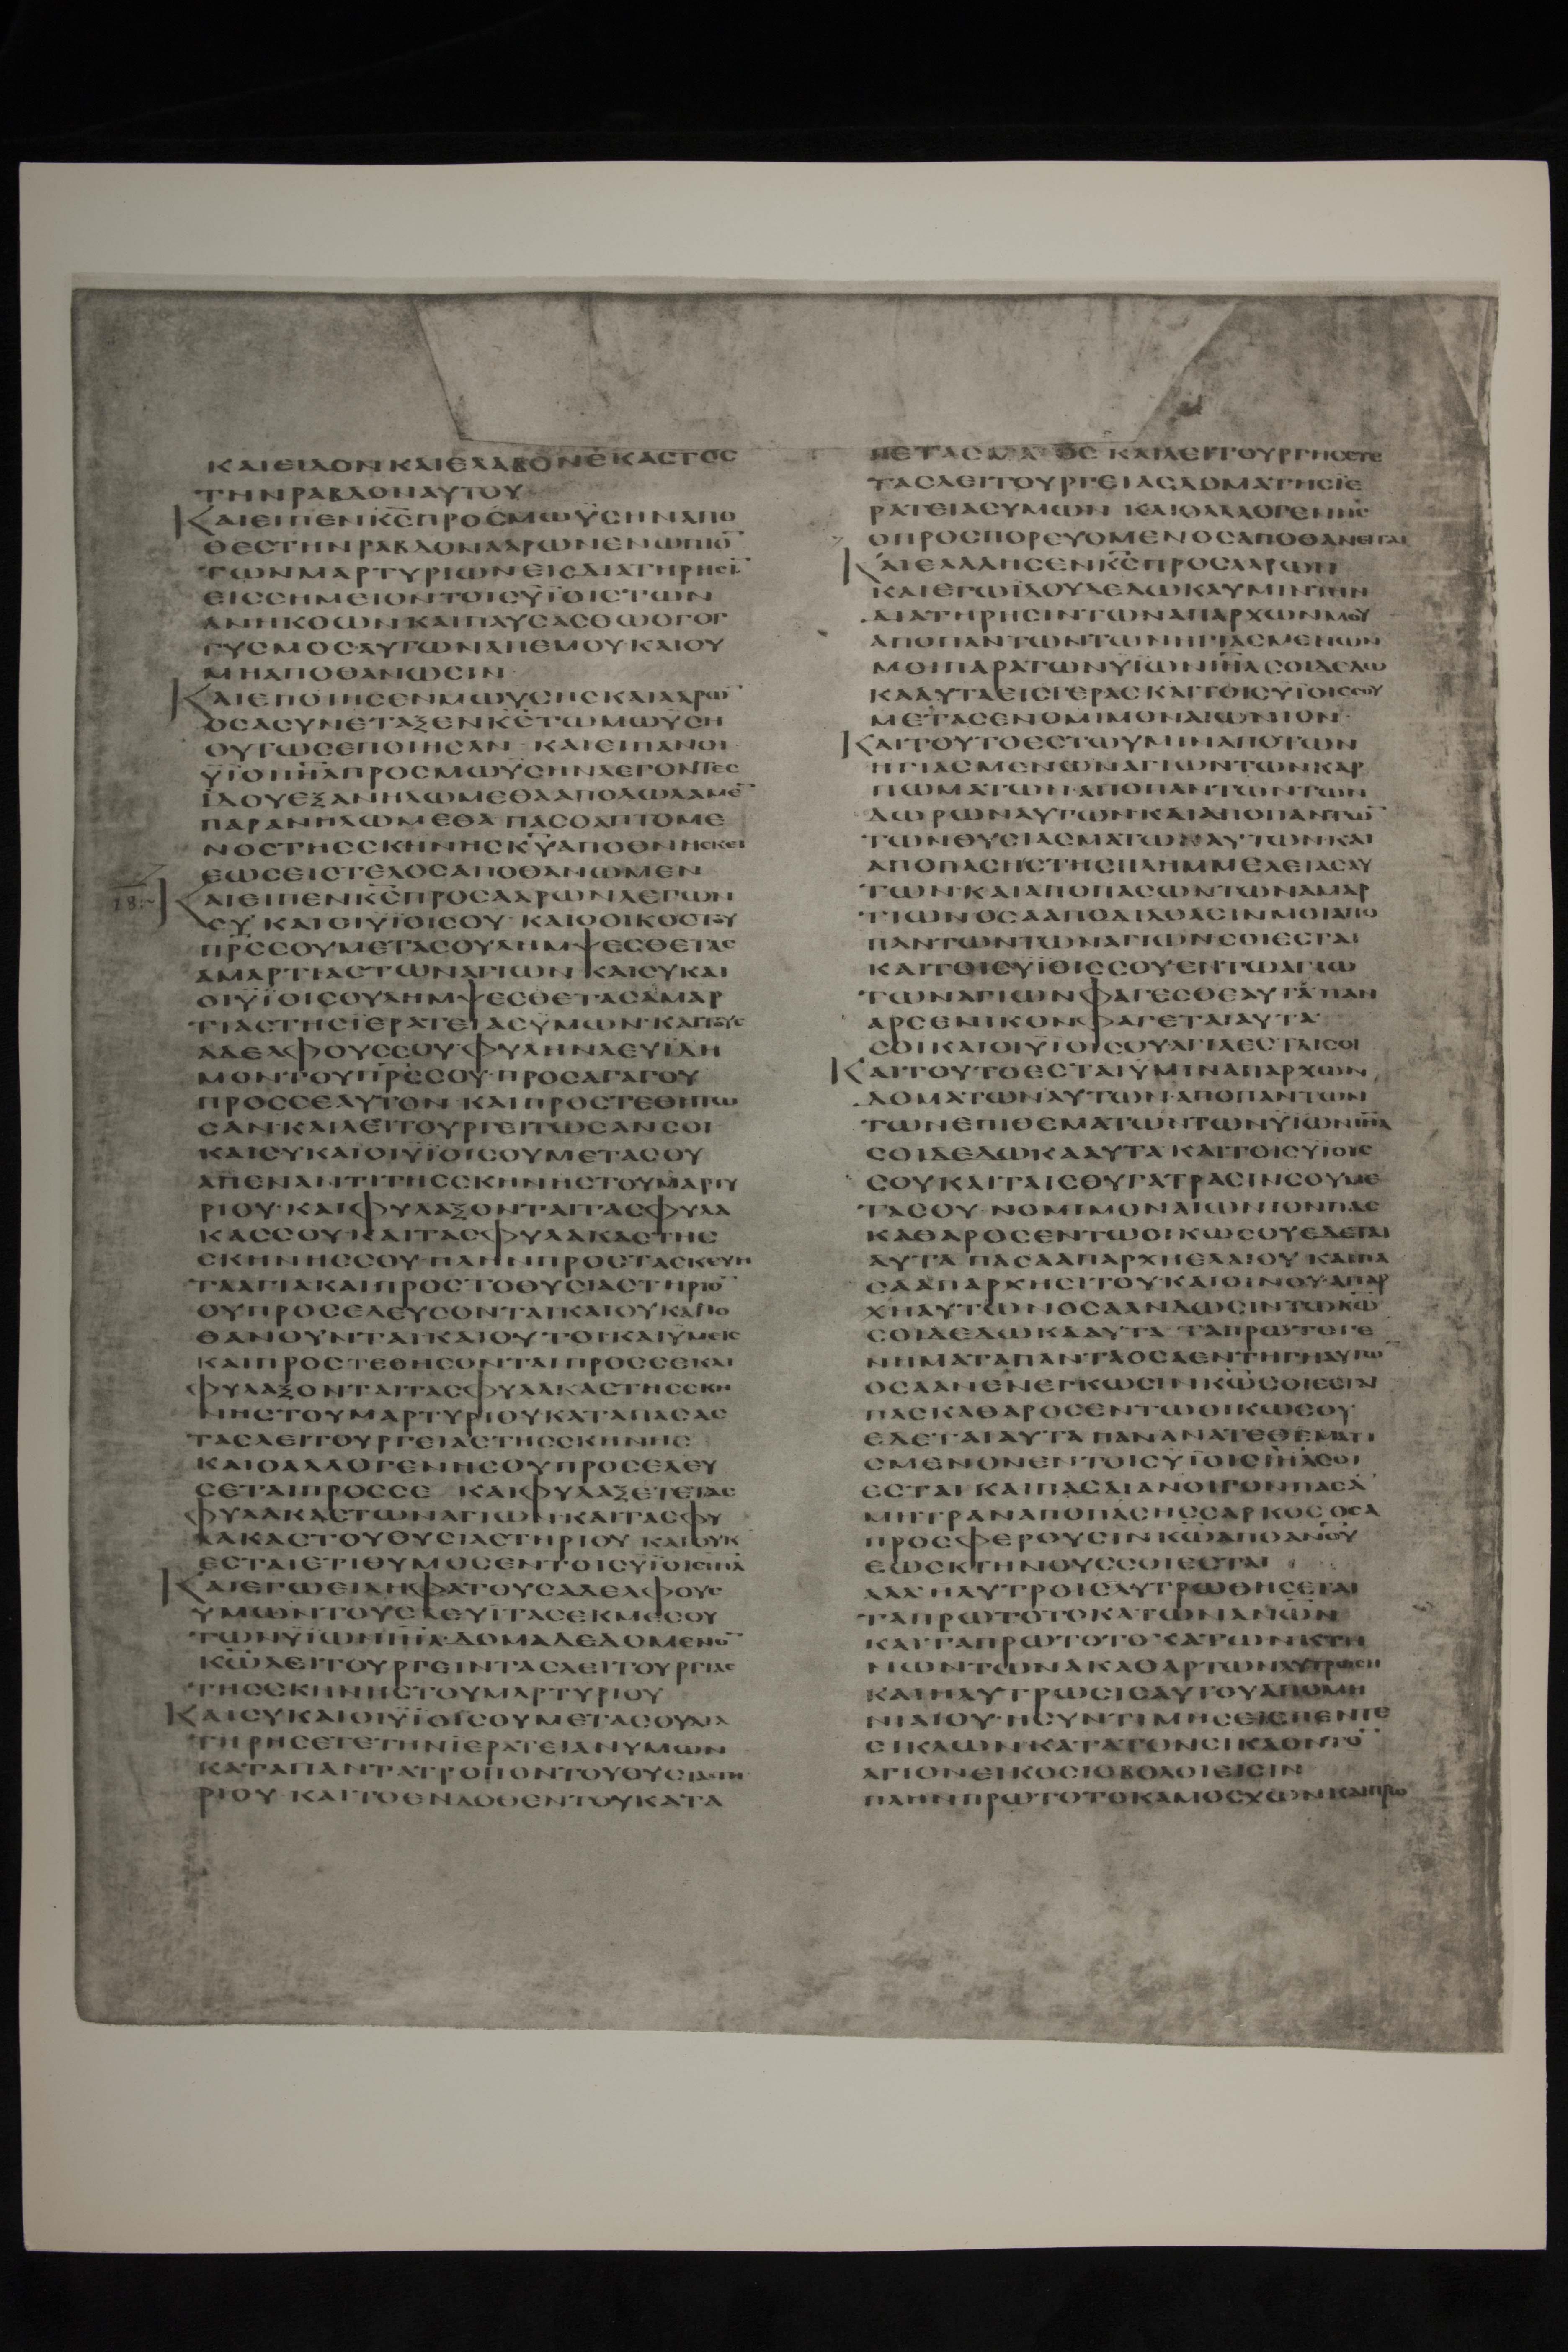 ΚΑΙΕΙΔΟΝΚΑΙΕΛΑΒΟΝΕΚΑΣΤΟΣ
ΤΗΝΡΑΒΔΟΝΑΥΤΟΥ
ΚΑΙΕΙΠΕΝΚ̅Σ̅ΠΡΟΣΜΩΫΣΗΝΑΠΟ
ΘΕΣΤΗΝΡΑΒΔΟΝΑΑΡΩΝΕΝΩΠΙΟ̅
ΤΩΝΜΑΡΤΥΡΙΩΝΕΙΣΔΙΑΤΗΡΗΣΙ̅
ΕΙΣΣΗΜΕΙΟΝΤΟΙΣΥΪΟΙΣΤΩΝ
ΑΝΗΚΟΩΝΚΑΙΠΑΥΣΑΣΘΩΟΓΟΓ
ΓΥΣΜΟΣΑΥΤΩΝΑΠΕΜΟΥΚΑΙΟΥ
ΜΗΑΠΟΘΑΝΩΣΙΝ
ΚΑΙΕΠΟΙΗΣΕΝΜΩΥΣΗΣΚΑΙΑΑΡΩ̅
ΟΣΑΣΥΝΕΤΑΞΕΝΚ̅Σ̅ΤΩΜΩΥΣΗ
ΟΥΤΩΣΕΠΟΙΗΣΑΝ· ΚΑΙΕΙΠΑΝΟΙ
ΥΪΟΙΙ̅Η̅Λ̅ΠΡΟΣΜΩΫΣΗΝΛΕΓΟΝΤΕΣ
ΪΔΟΥΕΞΑΝΗΛΩΜΕΘΑΑΠΟΛΩΛΑΜΕ̅
ΠΑΡΑΝΗΛΩΜΕΘΑ·ΠΑΣΟΑΠΤΟΜΕ
ΝΟΣΤΗΣΣΚΗΝΗΣΚ̅Υ̅ΑΠΟΘΝΗΣΚΕΙ
ΕΩΣΕΙΣΤΕΛΟΣΑΠΟΘΑΝΩΜΕΝ
18:~
ΚΑΙΕΙΠΕΝΚ̅Σ̅ΠΡΟΣΑΑΡΩΝΛΕΓΩΝ
ΣΥ ΚΑΙΟΙΥΪΟΙΣΟΥ· ΚΑΙΟΟΙΚΟΣΤΟΥ
Π̅Ρ̅Σ̅ΣΟΥΜΕΤΑΣΟΥΛΗΜΨΕΣΘΕΤΑΣ
ΑΜΑΡΤΙΑΣΤΩΝΑΓΙΩΝ·ΚΑΙΣΥΚΑΙ
ΟΙΥΪΟΙΣΟΥΛΗΜΨΕΣΘΕΤΑΣΑΜΑΡ
ΤΙΑΣΤΗΣΪΕΡΑΤΕΙΑΣΫΜΩΝ·ΚΑΙΤΟΥΣ
ΑΔΕΛΦΟΥΣΣΟΥ·ΦΥΛΗΝΛΕΥΙΔΗ
ΜΟΝΤΟΥΠ̅Ρ̅Σ̅ΣΟΥ·ΠΡΟΣΑΓΑΓΟΥ
ΠΡΟΣΣΕΑΥΤΟΝ·ΚΑΙΠΡΟΣΤΕΘΗΤΩ
ΣΑΝ·ΚΑΙΛΕΙΤΟΥΡΓΕΙΤΩΣΑΝΣΟΙ
ΚΑΙΣΥΚΑΙΟΙΥΪΟΙΣΟΥΜΕΤΑΣΟΥ
ΑΠΕΝΑΝΤΙΤΗΣΣΚΗΝΗΣΤΟΥΜΑΡΤΥ
ΡΙΟΥ·ΚΑΙΦΥΛΑΞΟΝΤΑΙΤΑΣΦΥΛΑ
ΚΑΣΣΟΥΚΑΙΤΑΣΦΥΛΑΚΑΣΤΗΣ
ΣΚΗΝΗΣΣΟΥ·ΠΛΗΝΠΡΟΣΤΑΣΚΕΥΗ
ΤΑΑΓΙΑΚΑΙΠΡΟΣΤΟΘΥΣΙΑΣΤΗΡΙΟ̅
ΟΥΠΡΟΣΕΛΕΥΣΟΝΤΑΙ·ΚΑΙΟΥΚΑΠΟ
ΘΑΝΟΥΝΤΑΙ·ΚΑΙΟΥΤΟΙΚΑΙΫΜΕΙΣ
ΚΑΙΠΡΟΣΤΕΘΗΣΟΝΤΑΙΠΡΟΣΣΕΚΑΙ
ΦΥΛΑΞΟΝΤΑΙΤΑΣΦΥΛΑΚΑΣΤΗΣΣΚΗ
ΝΗΣΤΟΥΜΑΡΤΥΡΙΟΥΚΑΤΑΠΑΣΑΣ
ΤΑΣΛΕΙΤΟΥΡΓΕΙΑΣΤΗΣΣΚΗΝΗΣ
ΚΑΙΟΑΛΛΟΓΕΝΗΣΟΥΠΡΟΣΕΛΕΥ
ΣΕΤΑΙΠΡΟΣΣΕ ΚΑΙΦΥΛΑΞΕΤΕΤΑΣ
ΦΥΛΑΚΑΣΤΩΝΑΓΙΩΝ·ΚΑΙΤΑΣΦΥ
ΛΑΚΑΣΤΟΥΘΥΣΙΑΣΤΗΡΙΟΥ ΚΑΙΟΥΚ
ΕΣΤΑΙΕΤΙΘΥΜΟΣΕΝΤΟΙΣΥΪΟΙΣΙ̅Η̅Λ̅
ΚΑΙΕΓΩΕΙΛΗΦΑΤΟΥΣΑΔΕΛΦΟΥΣ
ΥΜΩΝΤΟΥΣΛΕΥΙΤΑΣΕΚΜΕΣΟΥ
ΤΩΝΥΪΩΝΙ̅Η̅Λ̅·ΔΟΜΑΔΕΔΟΜΕΝΟ̅
Κ̅Ω̅ΛΕΙΤΟΥΡΓΕΙΝΤΑΣΛΕΙΤΟΥΡΓΙΑΣ
ΤΗΣΣΚΗΝΗΣΤΟΥΜΑΡΤΥΡΙΟΥ
ΚΑΙΣΥΚΑΙΟΙΥΪΟΙΣΟΥΜΕΤΑΣΟΥΔΙΑ
ΤΗΡΗΣΕΤΕΤΗΝΪΕΡΑΤΕΙΑΝΥΜΩΝ
ΚΑΤΑΠΑΝΤΑΤΡΟΠΟΝΤΟΥΘΥΣΙΑΣΤΗ
ΡΙΟΥ·ΚΑΙΤΟΕΝΔΟΘΕΝΤΟΥΚΑΤΑ
ΠΕΤΑΣΜΑΤΟΣ ΚΑΙΛΕΙΤΟΥΡΓΗΣΕΤΕ
ΤΑΣΛΕΙΤΟΥΡΓΕΙΑΣΔΟΜΑΤΗΣΪΕ
ΡΑΤΕΙΑΣΥΜΩΝ ΚΑΙΟΑΛΛΟΓΕΝΗΣ
ΟΠΡΟΣΠΟΡΕΥΟΜΕΝΟΣΑΠΟΘΑΝΕΙΤΑΙ
ΚΑΙΕΛΑΛΗΣΕΝΚ̅Σ̅ΠΡΟΣΑΑΡΩΝ
ΚΑΙΕΓΩΪΔΟΥΔΕΔΩΚΑΥΜΙΝΤΗΝ
ΔΙΑΤΗΡΗΣΙΝΤΩΝΑΠΑΡΧΩΝΜΟΥ
ΑΠΟΠΑΝΤΩΝΤΩΝΗΓΙΑΣΜΕΝΩΝ
ΜΟΙΠΑΡΑΤΩΝΥΪΩΝΙ̅Η̅Λ̅ΣΟΙΔΕΔΩ
ΚΑΑΥΤΑΕΙΣΓΕΡΑΣΚΑΙΤΟΙΣΥΪΟΙΣΣΟΥ
ΜΕΤΑΣΕΝΟΜΙΜΟΝΑΙΩΝΙΟΝ·
ΚΑΙΤΟΥΤΟΕΣΤΩΥΜΙΝΑΠΟΤΩΝ
ΗΓΙΑΣΜΕΝΩΝΑΓΙΩΝΤΩΝΚΑΡ
ΠΩΜΑΤΩΝ·ΑΠΟΠΑΝΤΩΝΤΩΝ
ΔΩΡΩΝΑΥΤΩΝΚΑΙΑΠΟΠΑΝΤΩ̅
ΤΩΝΘΥΣΙΑΣΜΑΤΩΝΑΥΤΩΝΚΑΙ
ΑΠΟΠΑΣΗΣΤΗΣΠΛΗΜΜΕΛΕΙΑΣΑΥ
ΤΩΝ·ΚΑΙΑΠΟΠΑΣΩΝΤΩΝΑΜΑΡ
ΤΙΩΝΟΣΑΑΠΟΔΙΔΟΑΣΙΝΜΟΙΑΠΟ
ΠΑΝΤΩΝΤΩΝΑΓΙΩΝΣΟΙΕΣΤΑΙ
ΚΑΙΤΟΙΣΥΪΟΙΣΣΟΥΕΝΤΩΑΓΙΩ
ΤΩΝΑΓΙΩΝΦΑΓΕΣΘΕΑΥΤΑΠΑΝ
ΑΡΣΕΝΙΚΟΝΦΑΓΕΤΑΙΑΥΤΑ
ΣΟΙΚΑΙΟΙΥΪΟΙΣΟΥΑΓΙΑΕΣΤΑΙΣΟΙ
ΚΑΙΤΟΥΤΟΕΣΤΑΙΫΜΙΝΑΠΑΡΧΩΝ
ΔΟΜΑΤΩΝΑΥΤΩΝ·ΑΠΟΠΑΝΤΩΝ
ΤΩΝΕΠΙΘΕΜΑΤΩΝΤΩΝΥΪΩΝΙ̅Η̅Λ̅
ΣΟΙΔΕΔΩΚΑΑΥΤΑ·ΚΑΙΤΟΙΣΥΪΟΙΣ
ΣΟΥΚΑΙΤΑΙΣΘΥΓΑΤΡΑΣΙΝΣΟΥΜΕ
ΤΑΣΟΥ·ΝΟΜΙΜΟΝΑΙΩΝΙΟΝΠΑΣ
ΚΑΘΑΡΟΣΕΝΤΩΟΙΚΩΣΟΥΕΔΕΤΑΙ
ΑΥΤΑ ΠΑΣΑΑΠΑΡΧΗΕΛΑΙΟΥ ΚΑΙΠΑ
ΣΑΑΠΑΡΧΗΣΙΤΟΥΚΑΙΟΙΝΟΥ·ΑΠΑΡ
ΧΗΑΥΤΩΝΟΣΑΑΝΔΩΣΙΝΤΩΚ̅Ω̅
ΣΟΙΔΕΔΩΚΑΑΥΤΑ ΤΑΠΡΩΤΟΓΕ
ΝΗΜΑΤΑΠΑΝΤΑΟΣΑΕΝΤΗΓΗΑΥΤΩ̅
ΟΣΑΑΝΕΝΕΓΚΩΣΙΝΚ̅Ω̅ΣΟΙΕΣΙΝ
ΠΑΣΚΑΘΑΡΟΣΕΝΤΩΟΙΚΩΣΟΥ
ΕΔΕΤΑΙΑΥΤΑ ΠΑΝΑΝΑΤΕΘΕΜΑΤΙ
ΣΜΕΝΟΝΕΝΤΟΙΣΥΪΟΙΣΙ̅Η̅Λ̅ΣΟΙ
ΕΣΤΑΙ ΚΑΙΠΑΣΔΙΑΝΟΙΓΟΝΠΑΣΑ
ΜΗΤΡΑΝΑΠΟΠΑΣΗΣΣΑΡΚΟΣΟΣΑ
ΠΡΟΣΦΕΡΟΥΣΙΝΚ̅Ω̅ΑΠΟΑΝΟΥ
ΕΩΣΚΤΗΝΟΥΣΣΟΙΕΣΤΑΙ
ΑΛΛΗΛΥΤΡΟΙΣΛΥΤΡΩΘΗΣΕΤΑΙ
ΤΑΠΡΩΤΟΤΟΚΑΤΩΝΑΝΩΝ
ΚΑΙΤΑΠΡΩΤΟΤΟΚΑΤΩΝΚΤΗ
ΝΩΝΤΩΝΑΚΑΘΑΡΤΩΝΛΥΤΡΩΣΗ
ΚΑΙΗΛΥΤΡΩΣΙΣΑΥΤΟΥΑΠΟΜΗ
ΝΙΑΙΟΥ·ΗΣΥΝΤΙΜΗΣΕΙΣΠΕΝΤΕ
ΣΙΚΛΩΝ·ΚΑΤΑΤΟΝΣΙΚΛΟΝΤΟ̅
ΑΓΙΟΝΕΙΚΟΣΙΟΒΟΛΟΙΕΙΣΙΝ
ΠΛΗΝΠΡΩΤΟΤΟΚΑΜΟΣΧΩΝΚΑΙΠΡΩ